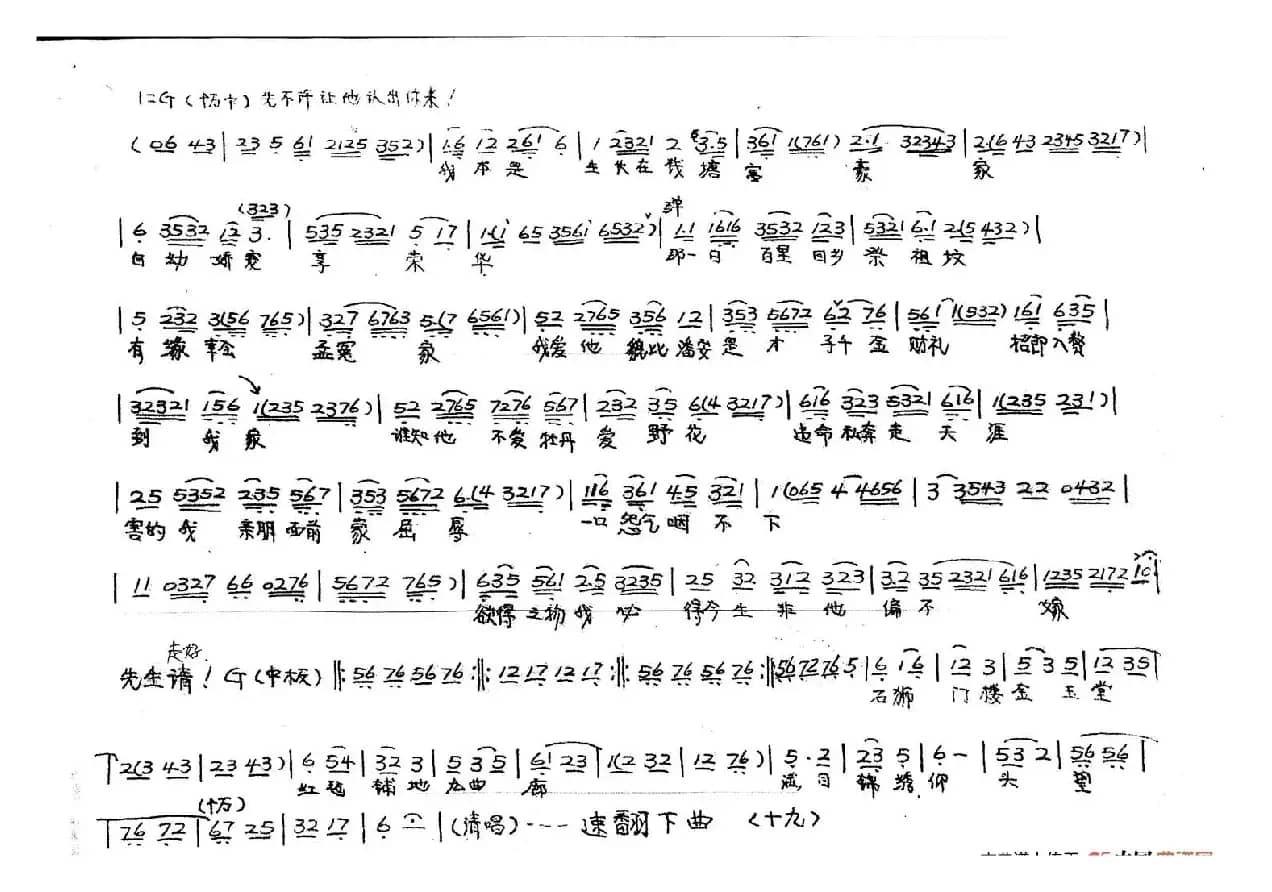 12G（十万卡）先不许让他认出你来！
(06 43 | 23 5 61 2125 352) | 1·6 12 261 6 | 1 2321 2 3·5 | 361 1(761) 2·1 32343 | 2(6 43 2345 3217) |
我本是 生长在钱塘富豪家
(323)
| 6 3532 12 3· | 535 2321 5 17 | 1(1 65 3561 6532) | 1·1 1616 3532 123 | 5321 6·1 2(5 432) |
自幼娇宠 享荣华 那一日 百里回乡祭祖坟
| 5 232 3(56 765) | 327 6763 5(7 6561) | 52 2765 356 12 | 353 5672 62 76 | 561 1(532) 161 635 |
有缘幸会 孟冤家 我爱他貌比潘安是才子千金财礼 招郎入赘
| 32321 156 1(235 2376) | 52 2765 7276 567 | 232 35 6(4 3217) | 616 323 5321 616 | 1(235 231) |
到我家 谁知他不爱牡丹爱野花 逃命私奔走天涯
| 25 5352 235 567 | 353 5672 6(4 3217) | 116 361 45 321 | 1(065 4 4656 | 3 3543 22 0432 |
害的我亲朋面前蒙屈辱 一口怨气咽不下
| 11 0327 66 0276 | 5672 765) | 635 561 2·5 3235 | 25 32 312 323 | 32 35 2321 616 | 1235 2172 10 |
欲得之物我必得今生非他偏不嫁
走好
先生请！G（中板）‖: 56 76 56 76 :‖: 12 17 12 17 :‖: 56 76 56 76 :‖ 56 72 76 5 | 6 16 | 12 3 | 5 3 5 | 12 35 |
石狮门楼金玉堂
2(3 43 | 23 43) | 6 54 | 32 3 | 5 3 5 | 61 23 | 1(2 32 | 12 76) | 5·2 | 23 5 | 6 – | 53 2 | 56 56 |
红毡铺地 曲廊 满目锦绣仰头望
(十万)
76 72 | 67 25 | 32 17 | 6 | (清唱)···· 速翻下曲（十九）